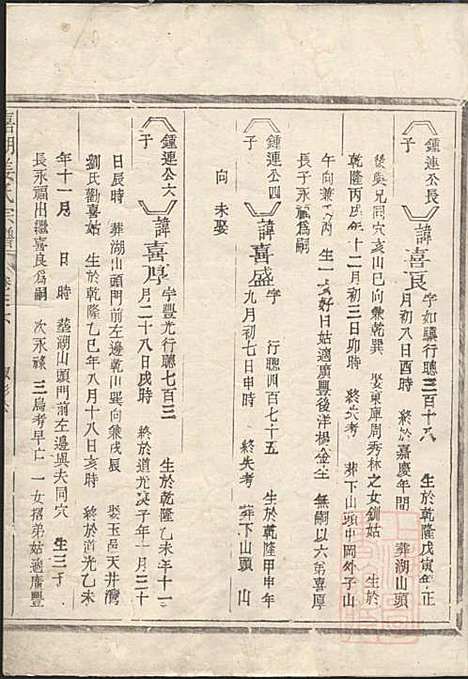 鐘連公長子
諱喜良
字如驥行聰三百十八 生於乾隆戊寅年正
月初八日酉時 終於嘉慶年間 葬湖山頭
後與兄同穴亥山巳向兼乾巽 娶東庫周秀林之女釧姑 生於
乾隆丙戌年十二月初三日卯時 終失考 葬下山頭中岡外子山
午向兼 丙 生一女好日姑適廣豐後洋楊金生 無嗣以六弟喜厚
長子永福爲嗣
鐘連公四子
諱喜盛
字 行聰四百七十五 生於乾隆甲申年
九月初七日申時 終失考 葬下山頭 山
向 未娶
鐘連公六子
諱喜厚
字豐光行聰七百三 生於乾隆乙未年十一
月二十八日戌時 終於道光庚子年二月二十
日辰時 葬湖山頭門前左邊乾山巽向兼戌辰 娶玉邑天井灣
劉氏勸喜姑 生於乾隆乙巳年八月十八日亥時 終於道光乙未
年十一月 日 時 葬湖山頭門前左邊與夫同穴 生三子
長永福出繼喜良爲嗣 次永祿 三烏考早亡 一女招弟姑適廣豐
氏宗譜